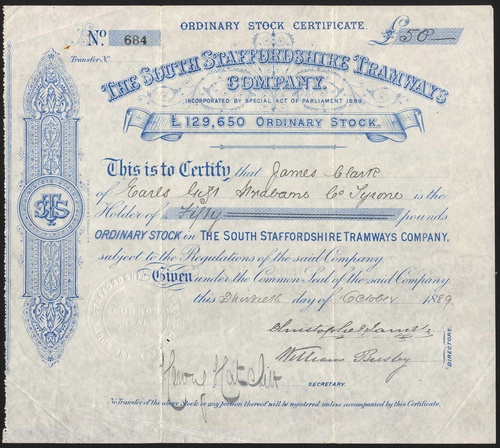 ORDINARY STOCK CERTIFICATE.
No. 684
£50
Transfer No
THE SOUTH STAFFORDSHIRE TRAMWAYS
COMPANY.
INCORPORATED BY SPECIAL ACT OF PARLIAMENT 1889.
£129,650 ORDINARY STOCK.
This is to Certify that James Clark
of Earls Gift Strabane Co Tyrone is the
Holder of Fifty pounds
ORDINARY STOCK in THE SOUTH STAFFORDSHIRE TRAMWAYS COMPANY,
subject to the Regulations of the said Company.
Given under the Common Seal of the said Company
this Thirtieth day of October 1889.
William Busby
DIRECTORS.
SECRETARY.
No Transfer of the above Stock or any portion thereof will be registered unless accompanied by this Certificate.